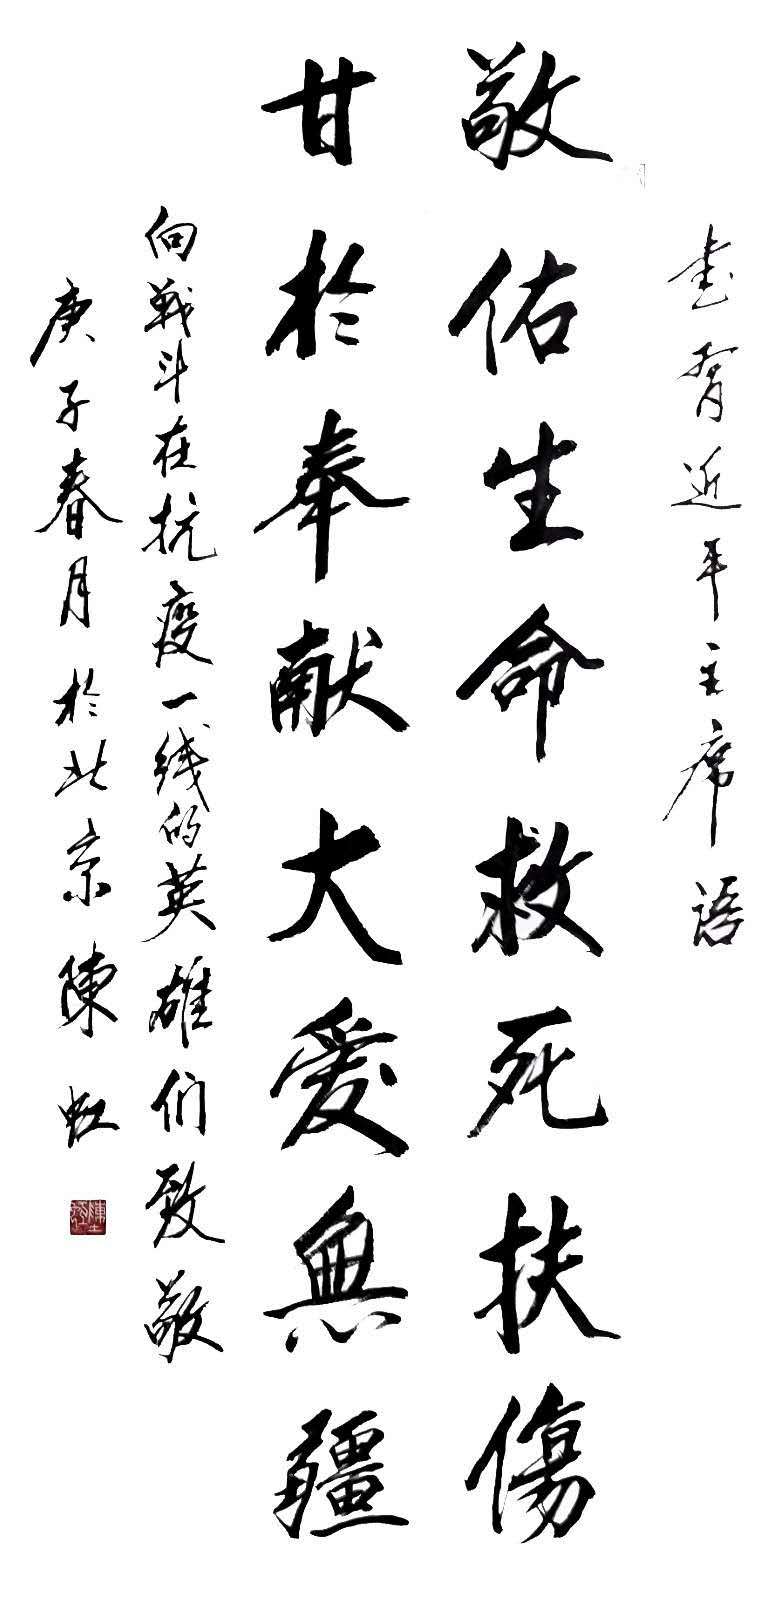 书習近平主席语
敬佑生命救死扶傷
甘於奉献大爱無疆
向戦斗在抗疫一线的英雄们致敬
庚子春月於北京陳虹